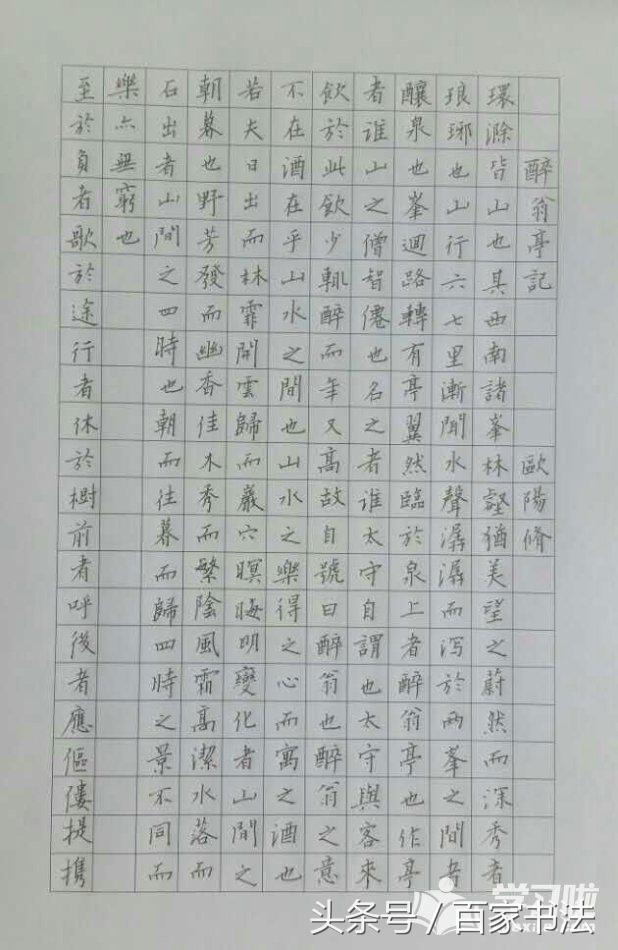 醉翁亭記 歐陽脩
環滁皆山也其西南諸峯林壑猶美望之蔚然而深秀者
琅琊也山行六七里漸聞水聲潺潺而泻於兩峯之間者
釀泉也峯迴路轉有亭翼然臨於泉上者醉翁亭也作亭
者誰山之僧智僊也名之者誰太守自謂也太守與客來
飲於此飲少輒醉而年又高故自號曰醉翁也醉翁之意
不在酒在乎山水之間也山水之樂得之心而寓之酒也
若夫日出而林霏開雲歸而巖穴暝晦明變化者山間之
朝暮也野芳發而幽香佳木秀而繁陰風霜高潔水落而
石出者山間之四時也朝而往暮而歸四時之景不同而
樂亦無窮也
至於負者歌於途行者休於樹前者呼後者應傴僂提携
学习啦
头条号/百家书法